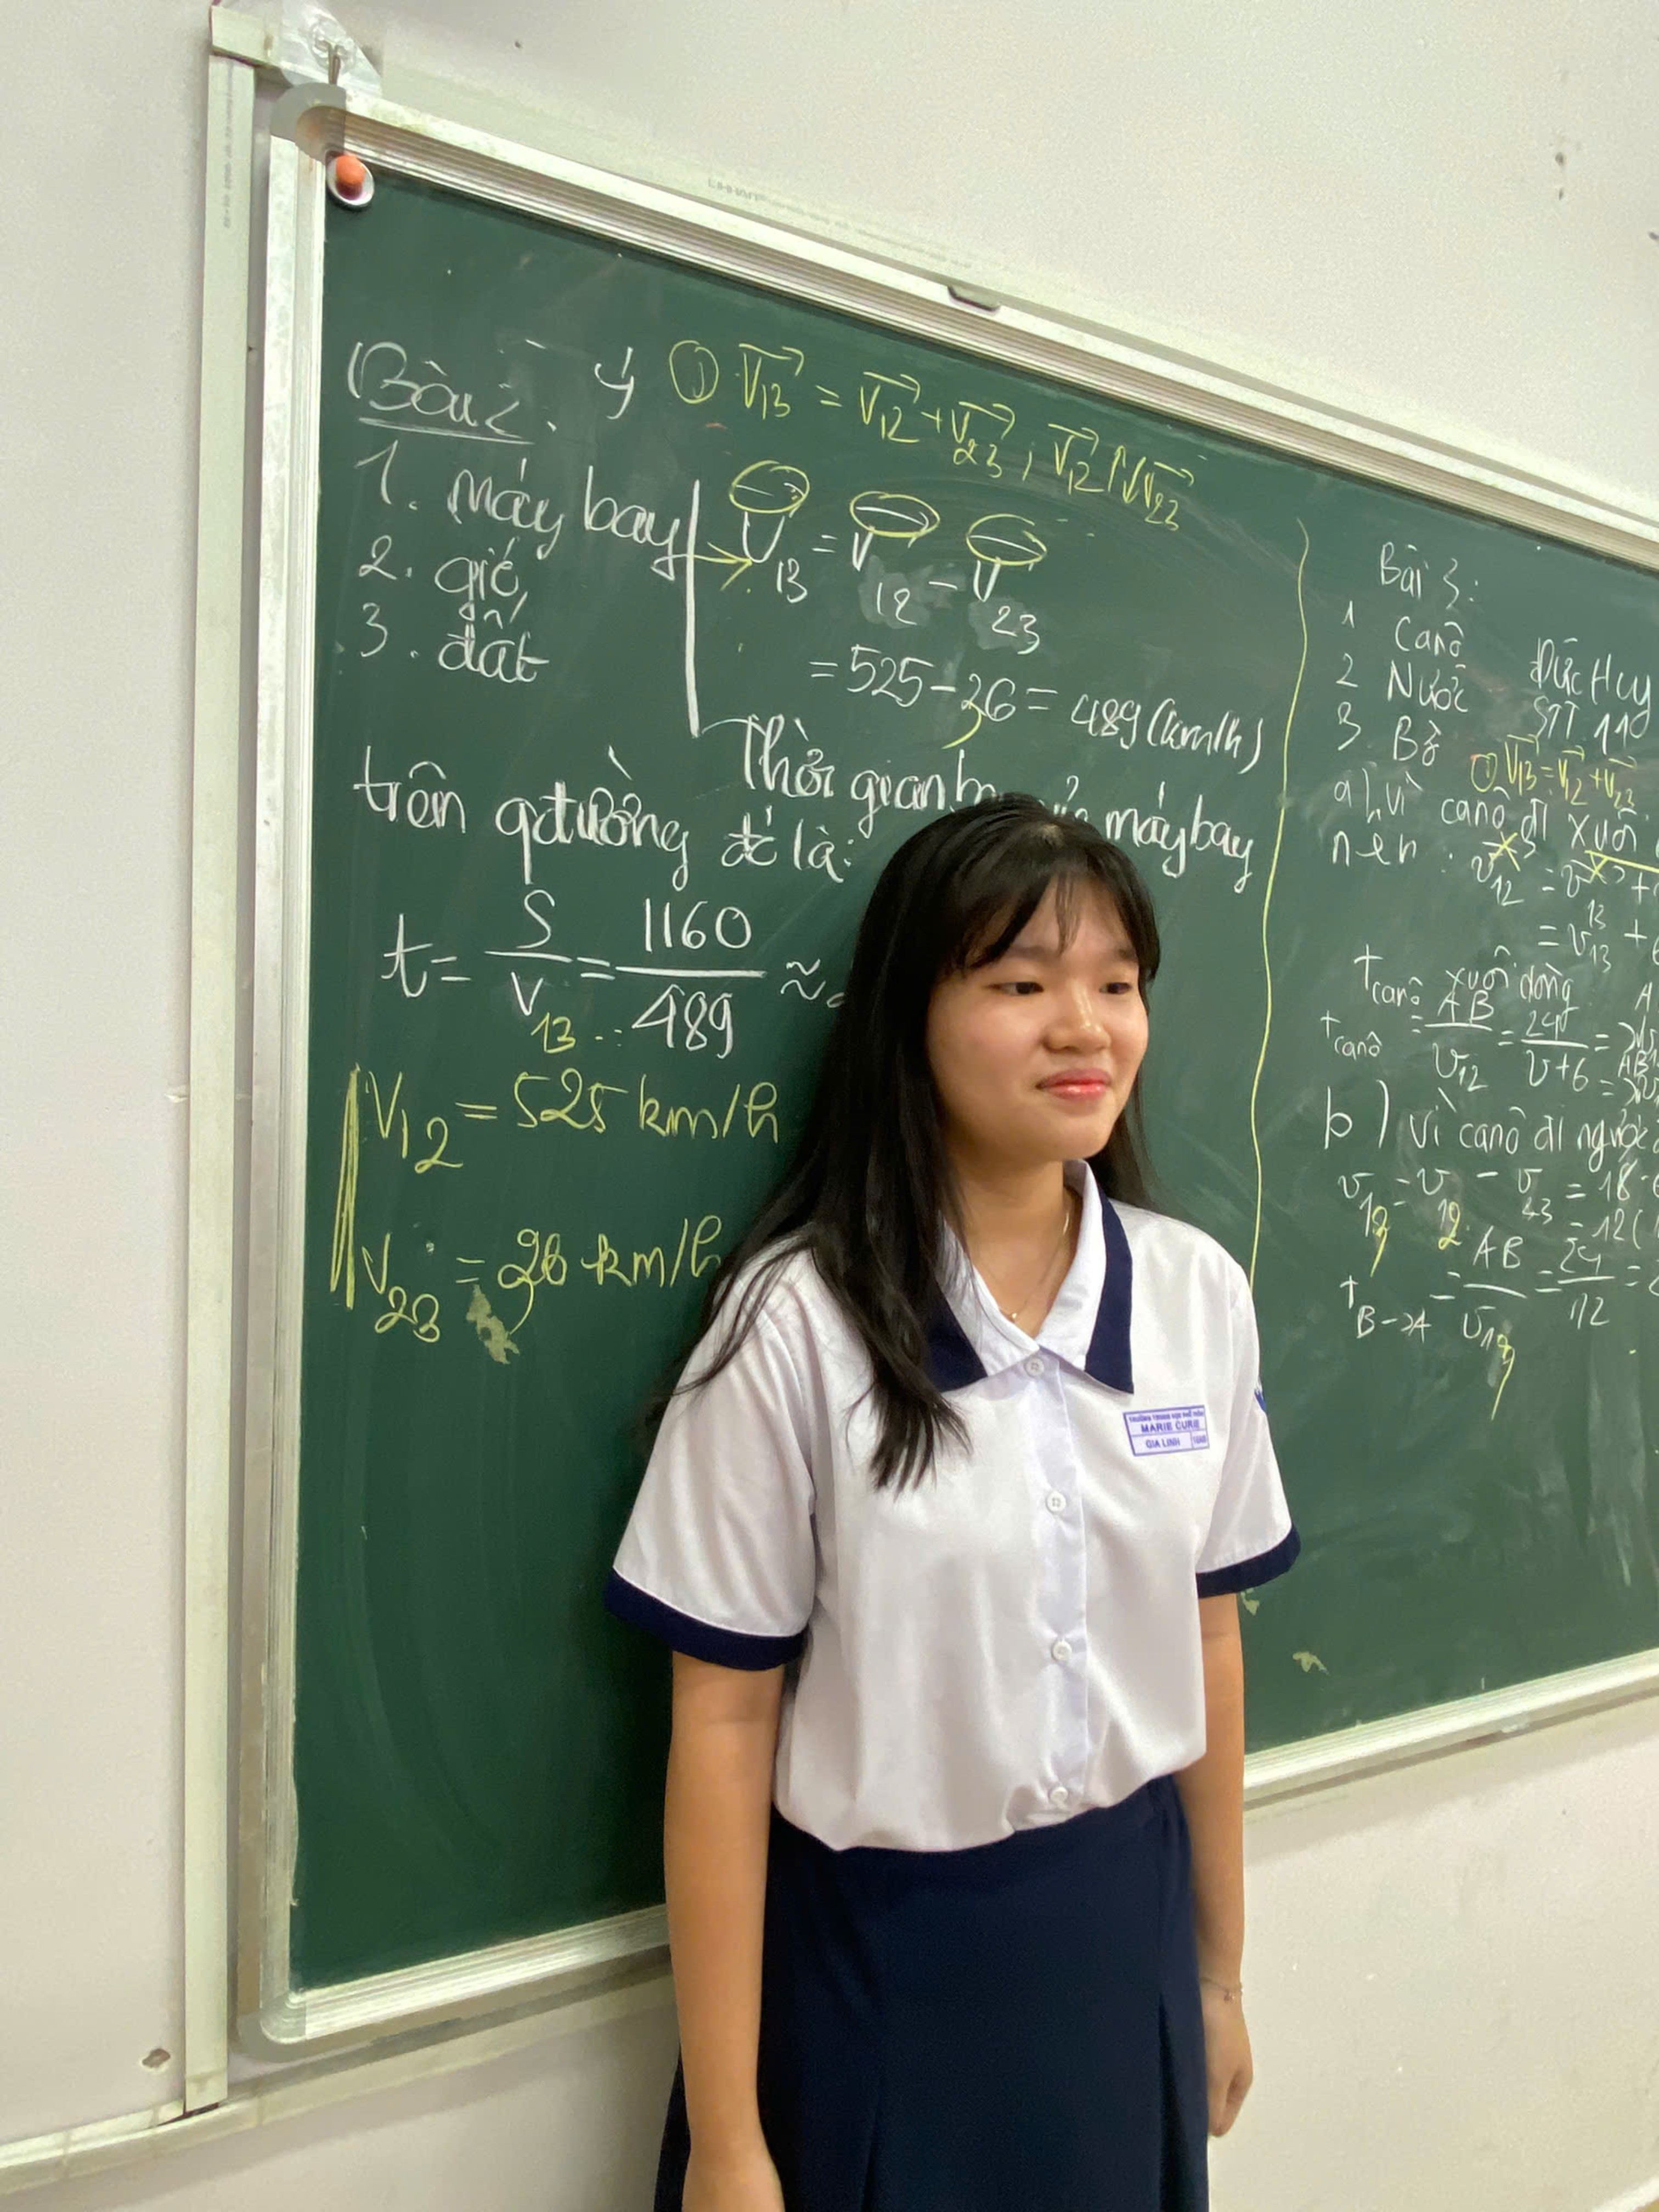 Bài 2. ý ① V₁₃ = V₁₂ + V₂₃, V₁₂ ↑↓ V₂₃
1. máy bay
2. gió
3. đất
V₁₃ = V₁₂ - V₂₃
= 525 - 36 = 489 (km/h)
Thời gian máy bay
trên qđường đó là:
t = S/V₁₃ = 1160/489 ≈
V₁₂ = 525 km/h
V₂₃ = 36 km/h
Bài 3:
1 Canô
2 Nước
3 Bờ
Đức Huy
STT 11
① V₁₃ = V₁₂ + V₂₃
a) vì canô đi xuôi
nên: v₁₂ = v₁₃ +
= v₁₃ + 6
t canô xuôi dòng
t canô = AB/v₁₂ = 24/v+6 =
b) vì canô đi ngược
v₁₃ = v₁₂ - v₂₃ = 18 -
= 12 (
t B→A = AB/v₁₃ = 24/12 =
TRƯỜNG TRUNG HỌC PHỔ THÔNG
MARIE CURIE
GIA LINH